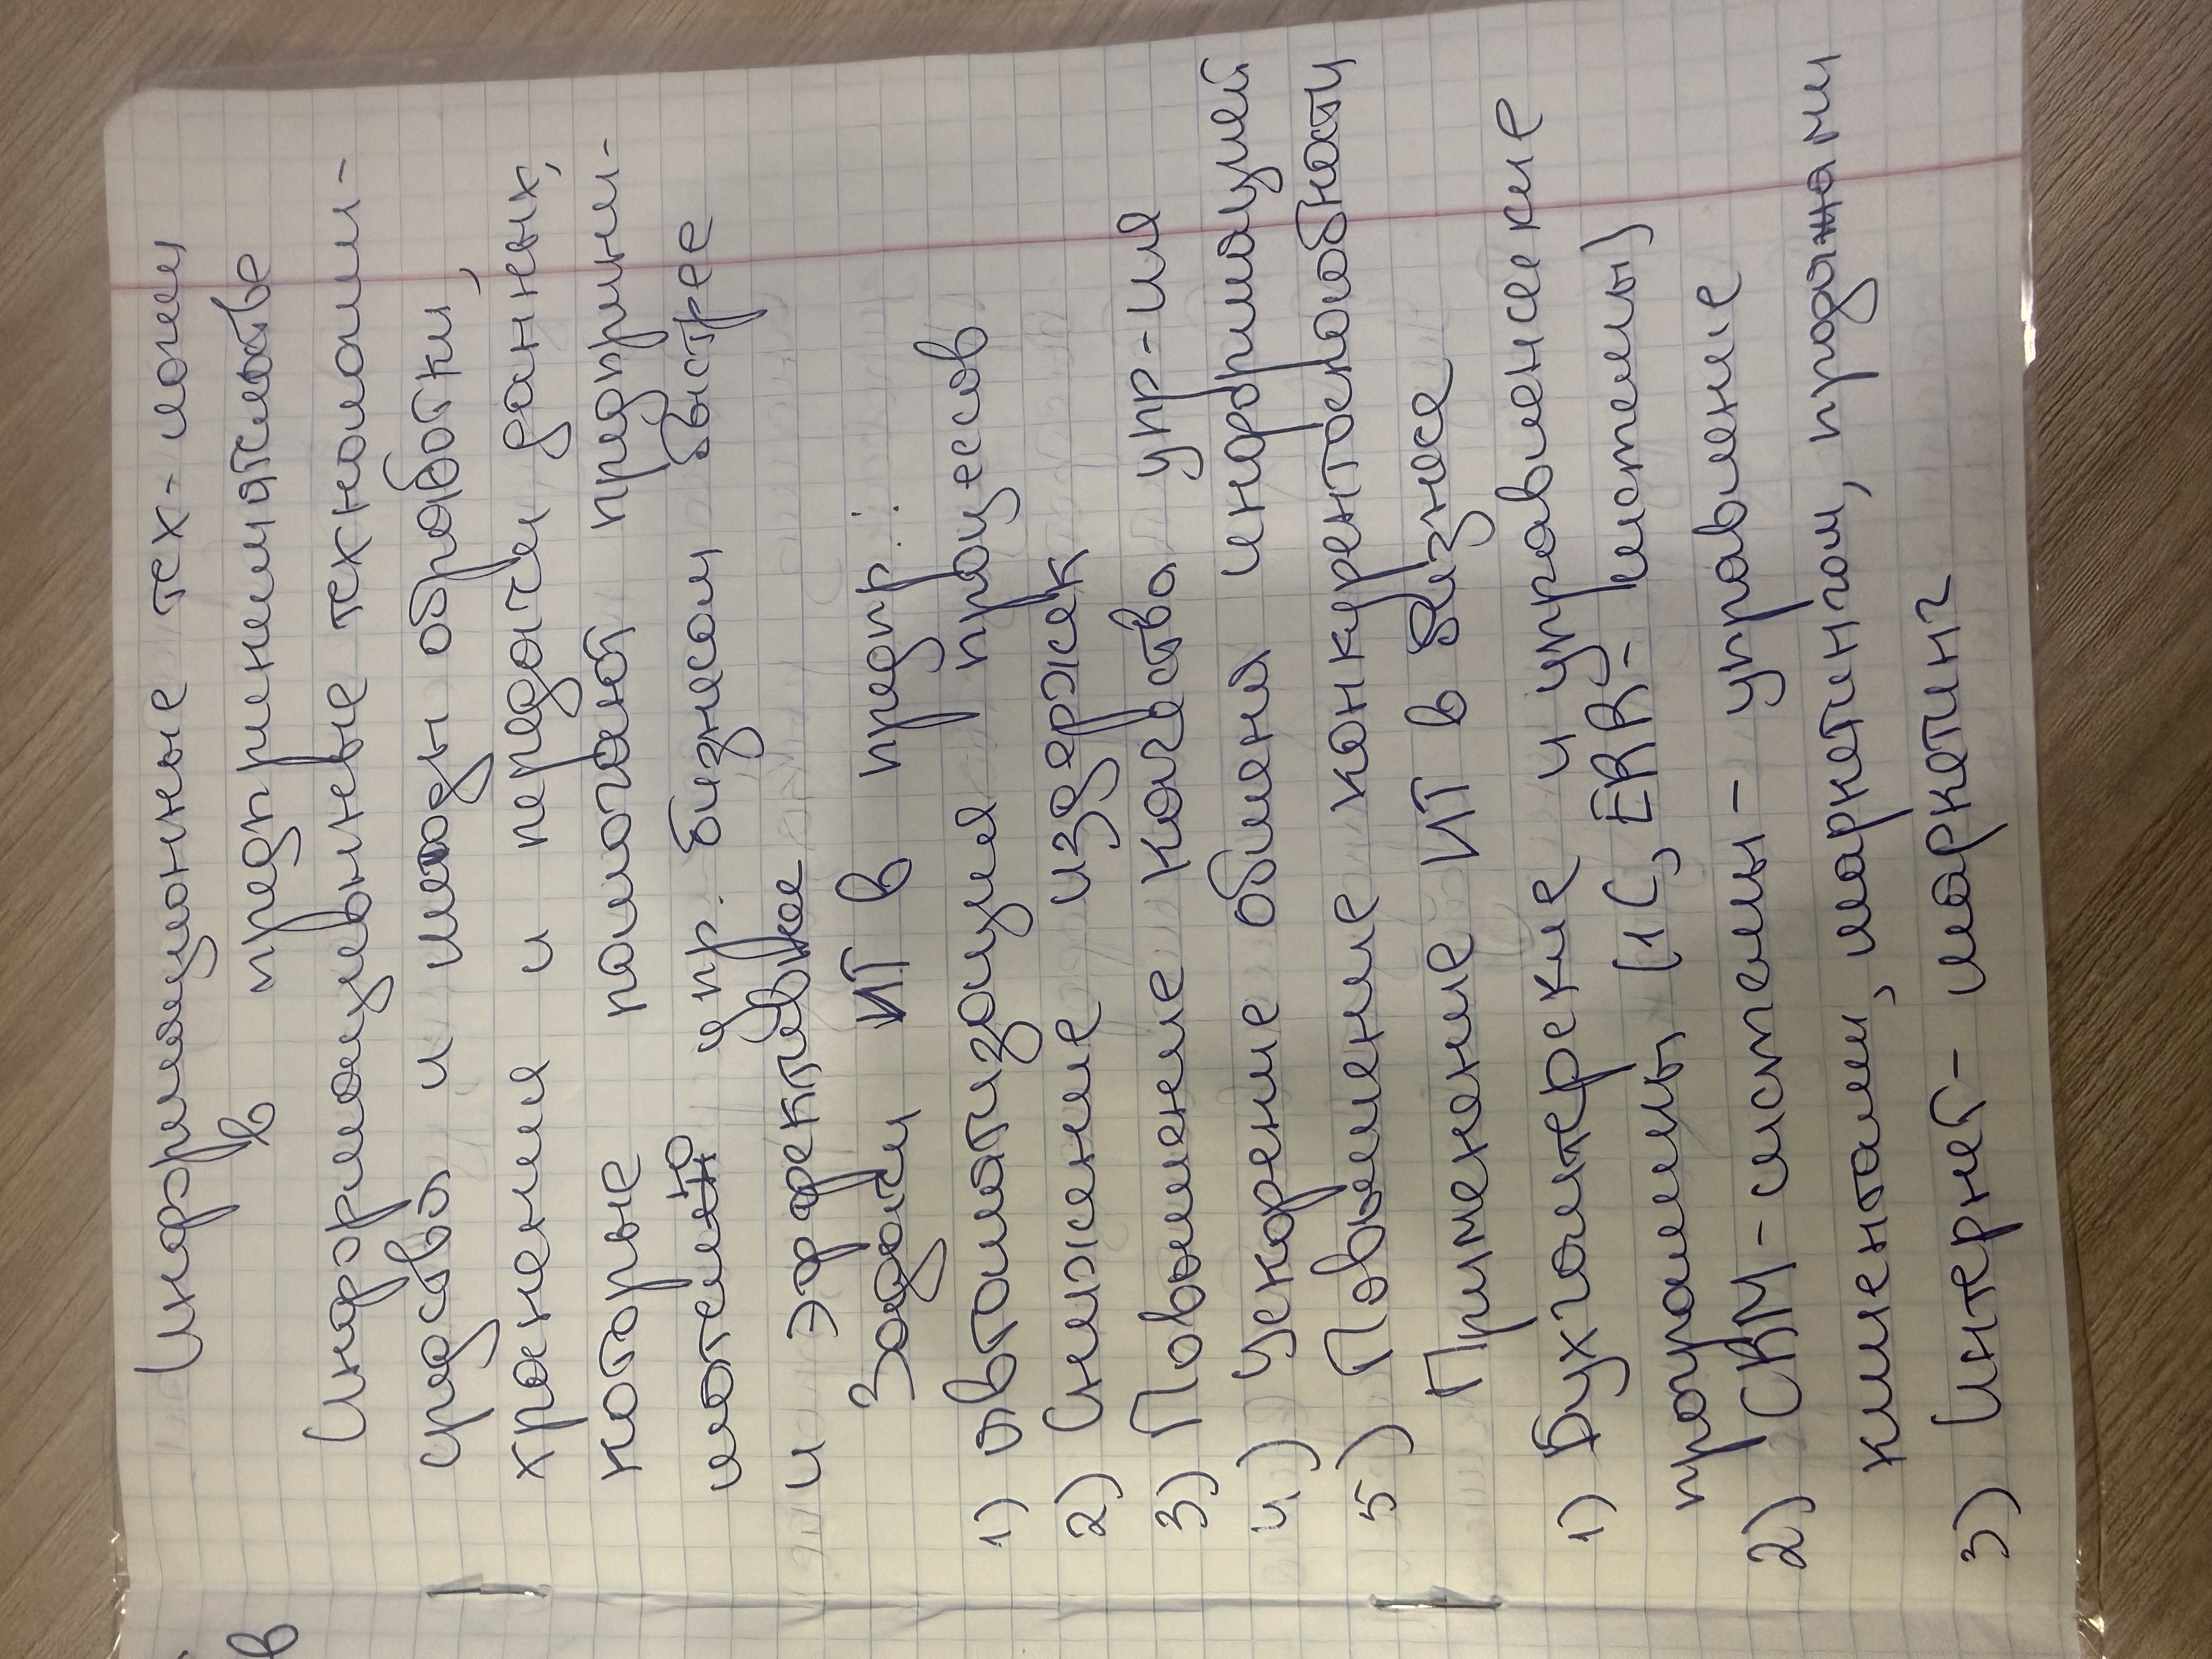 Информационные тех-логии
в предпринимательстве
Информацивные технологии -
средства и методы обработки,
хранения и передачи данных,
которые помогают предприни-
мателю упр. бизнесом быстрее
и эффективнее
Задачи ИТ в предпр.:
1) автоматизация процессов
2) Снижение издержек
3) Повышение качества упр-ия
4) ускорение обмена информацией
5) Повышение конкурентоспособности
Применение ИТ в бизнесе
1) Бухгалтерские и управленческие
программы (1С, ERP- системы)
2) CRM - системы - управление
клиентами, маркетингом, продажами
3) Интернет - маркетинг
в